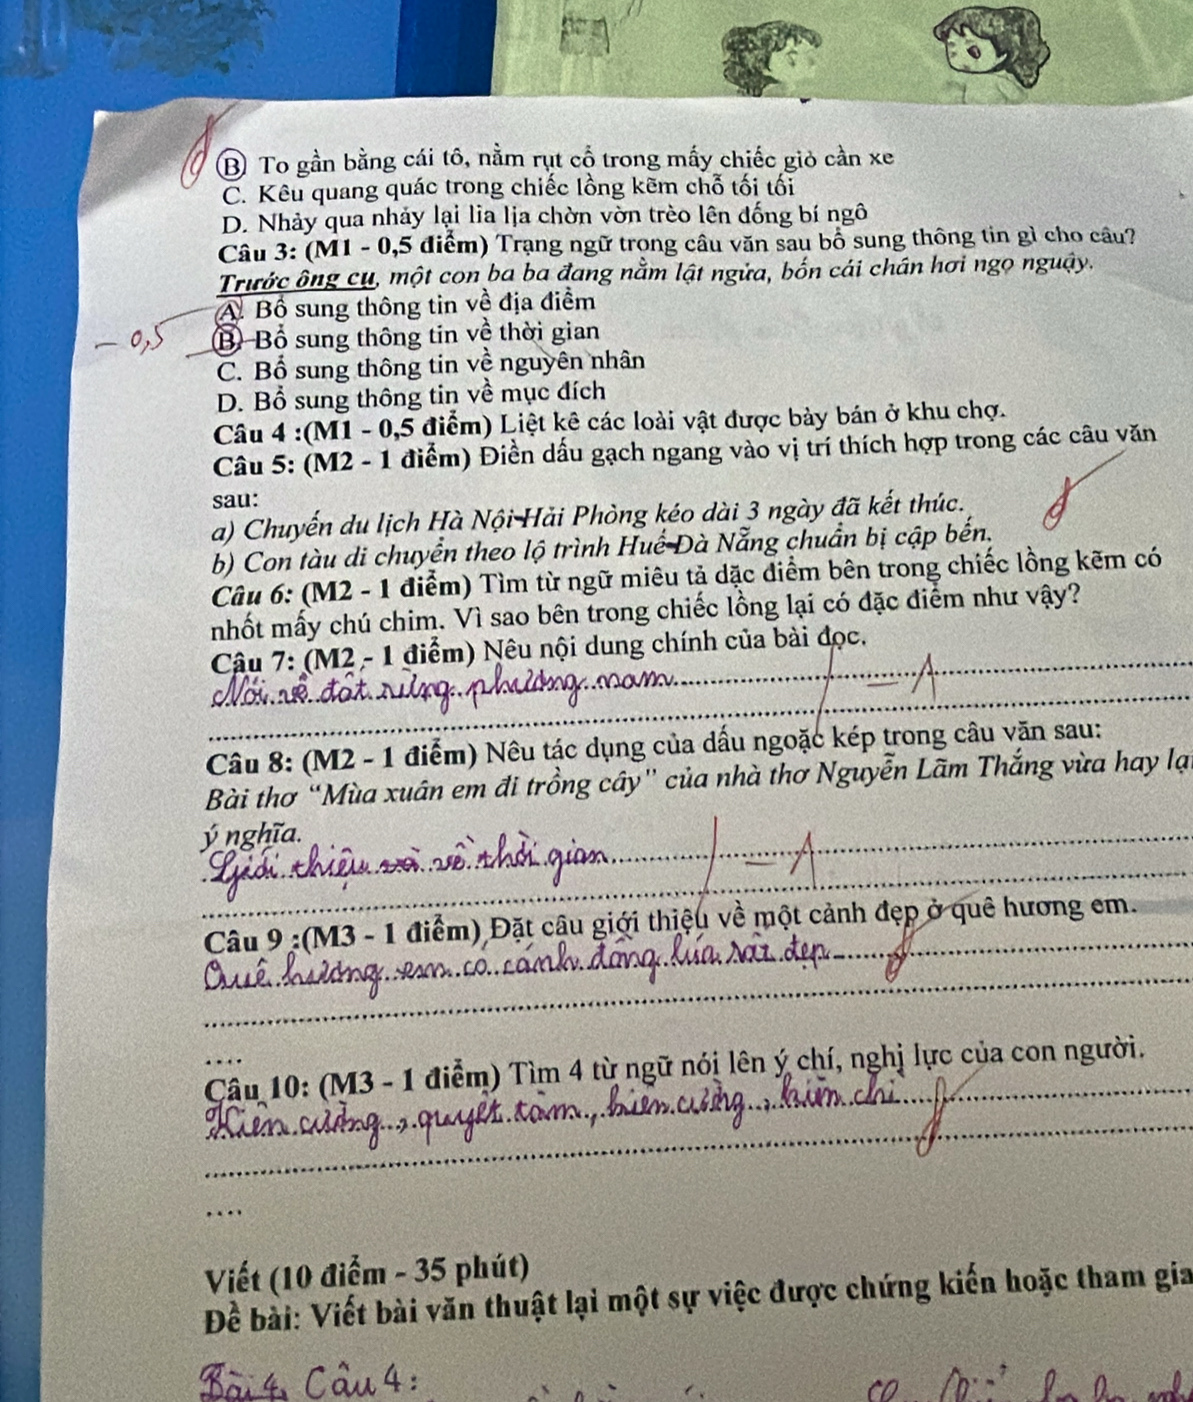 B. To gần bằng cái tô, nằm rụt cổ trong mấy chiếc giỏ cần xe
C. Kêu quang quác trong chiếc lồng kẽm chỗ tối tối
D. Nhảy qua nhảy lại lia lịa chờn vờn trèo lên đống bí ngô
Câu 3: (M1 - 0,5 điểm) Trạng ngữ trong câu văn sau bổ sung thông tin gì cho câu?
Trước ông cụ, một con ba ba đang nằm lật ngửa, bốn cái chân hơi ngọ nguậy.
A. Bổ sung thông tin về địa điểm
- 0,5 B. Bổ sung thông tin về thời gian
C. Bổ sung thông tin về nguyên nhân
D. Bổ sung thông tin về mục đích
Câu 4 :(M1 - 0,5 điểm) Liệt kê các loài vật được bày bán ở khu chợ.
Câu 5: (M2 - 1 điểm) Điền dấu gạch ngang vào vị trí thích hợp trong các câu văn
sau:
a) Chuyến du lịch Hà Nội-Hải Phòng kéo dài 3 ngày đã kết thúc.
b) Con tàu di chuyển theo lộ trình Huế-Đà Nẵng chuẩn bị cập bến.
Câu 6: (M2 - 1 điểm) Tìm từ ngữ miêu tả dặc điểm bên trong chiếc lồng kẽm có
nhốt mấy chú chim. Vì sao bên trong chiếc lồng lại có đặc điểm như vậy?
Câu 7: (M2 - 1 điểm) Nêu nội dung chính của bài đọc.
Nói về đất rừng phương nam - 1
Câu 8: (M2 - 1 điểm) Nêu tác dụng của dấu ngoặc kép trong câu văn sau:
Bài thơ “Mùa xuân em đi trồng cây" của nhà thơ Nguyễn Lãm Thắng vừa hay lại
ý nghĩa.
Giới thiệu về thời gian - 1
Câu 9 :(M3 - 1 điểm) Đặt câu giới thiệu về một cảnh đẹp ở quê hương em.
Quê hương em có cánh đồng lúa rất đẹp
....
Câu 10: (M3 - 1 điểm) Tìm 4 từ ngữ nói lên ý chí, nghị lực của con người.
Kiên cường, quyết tâm, kiên cường, kiên chì
....
Viết (10 điểm - 35 phút)
Đề bài: Viết bài văn thuật lại một sự việc được chứng kiến hoặc tham gia
Bài 4, Câu 4: